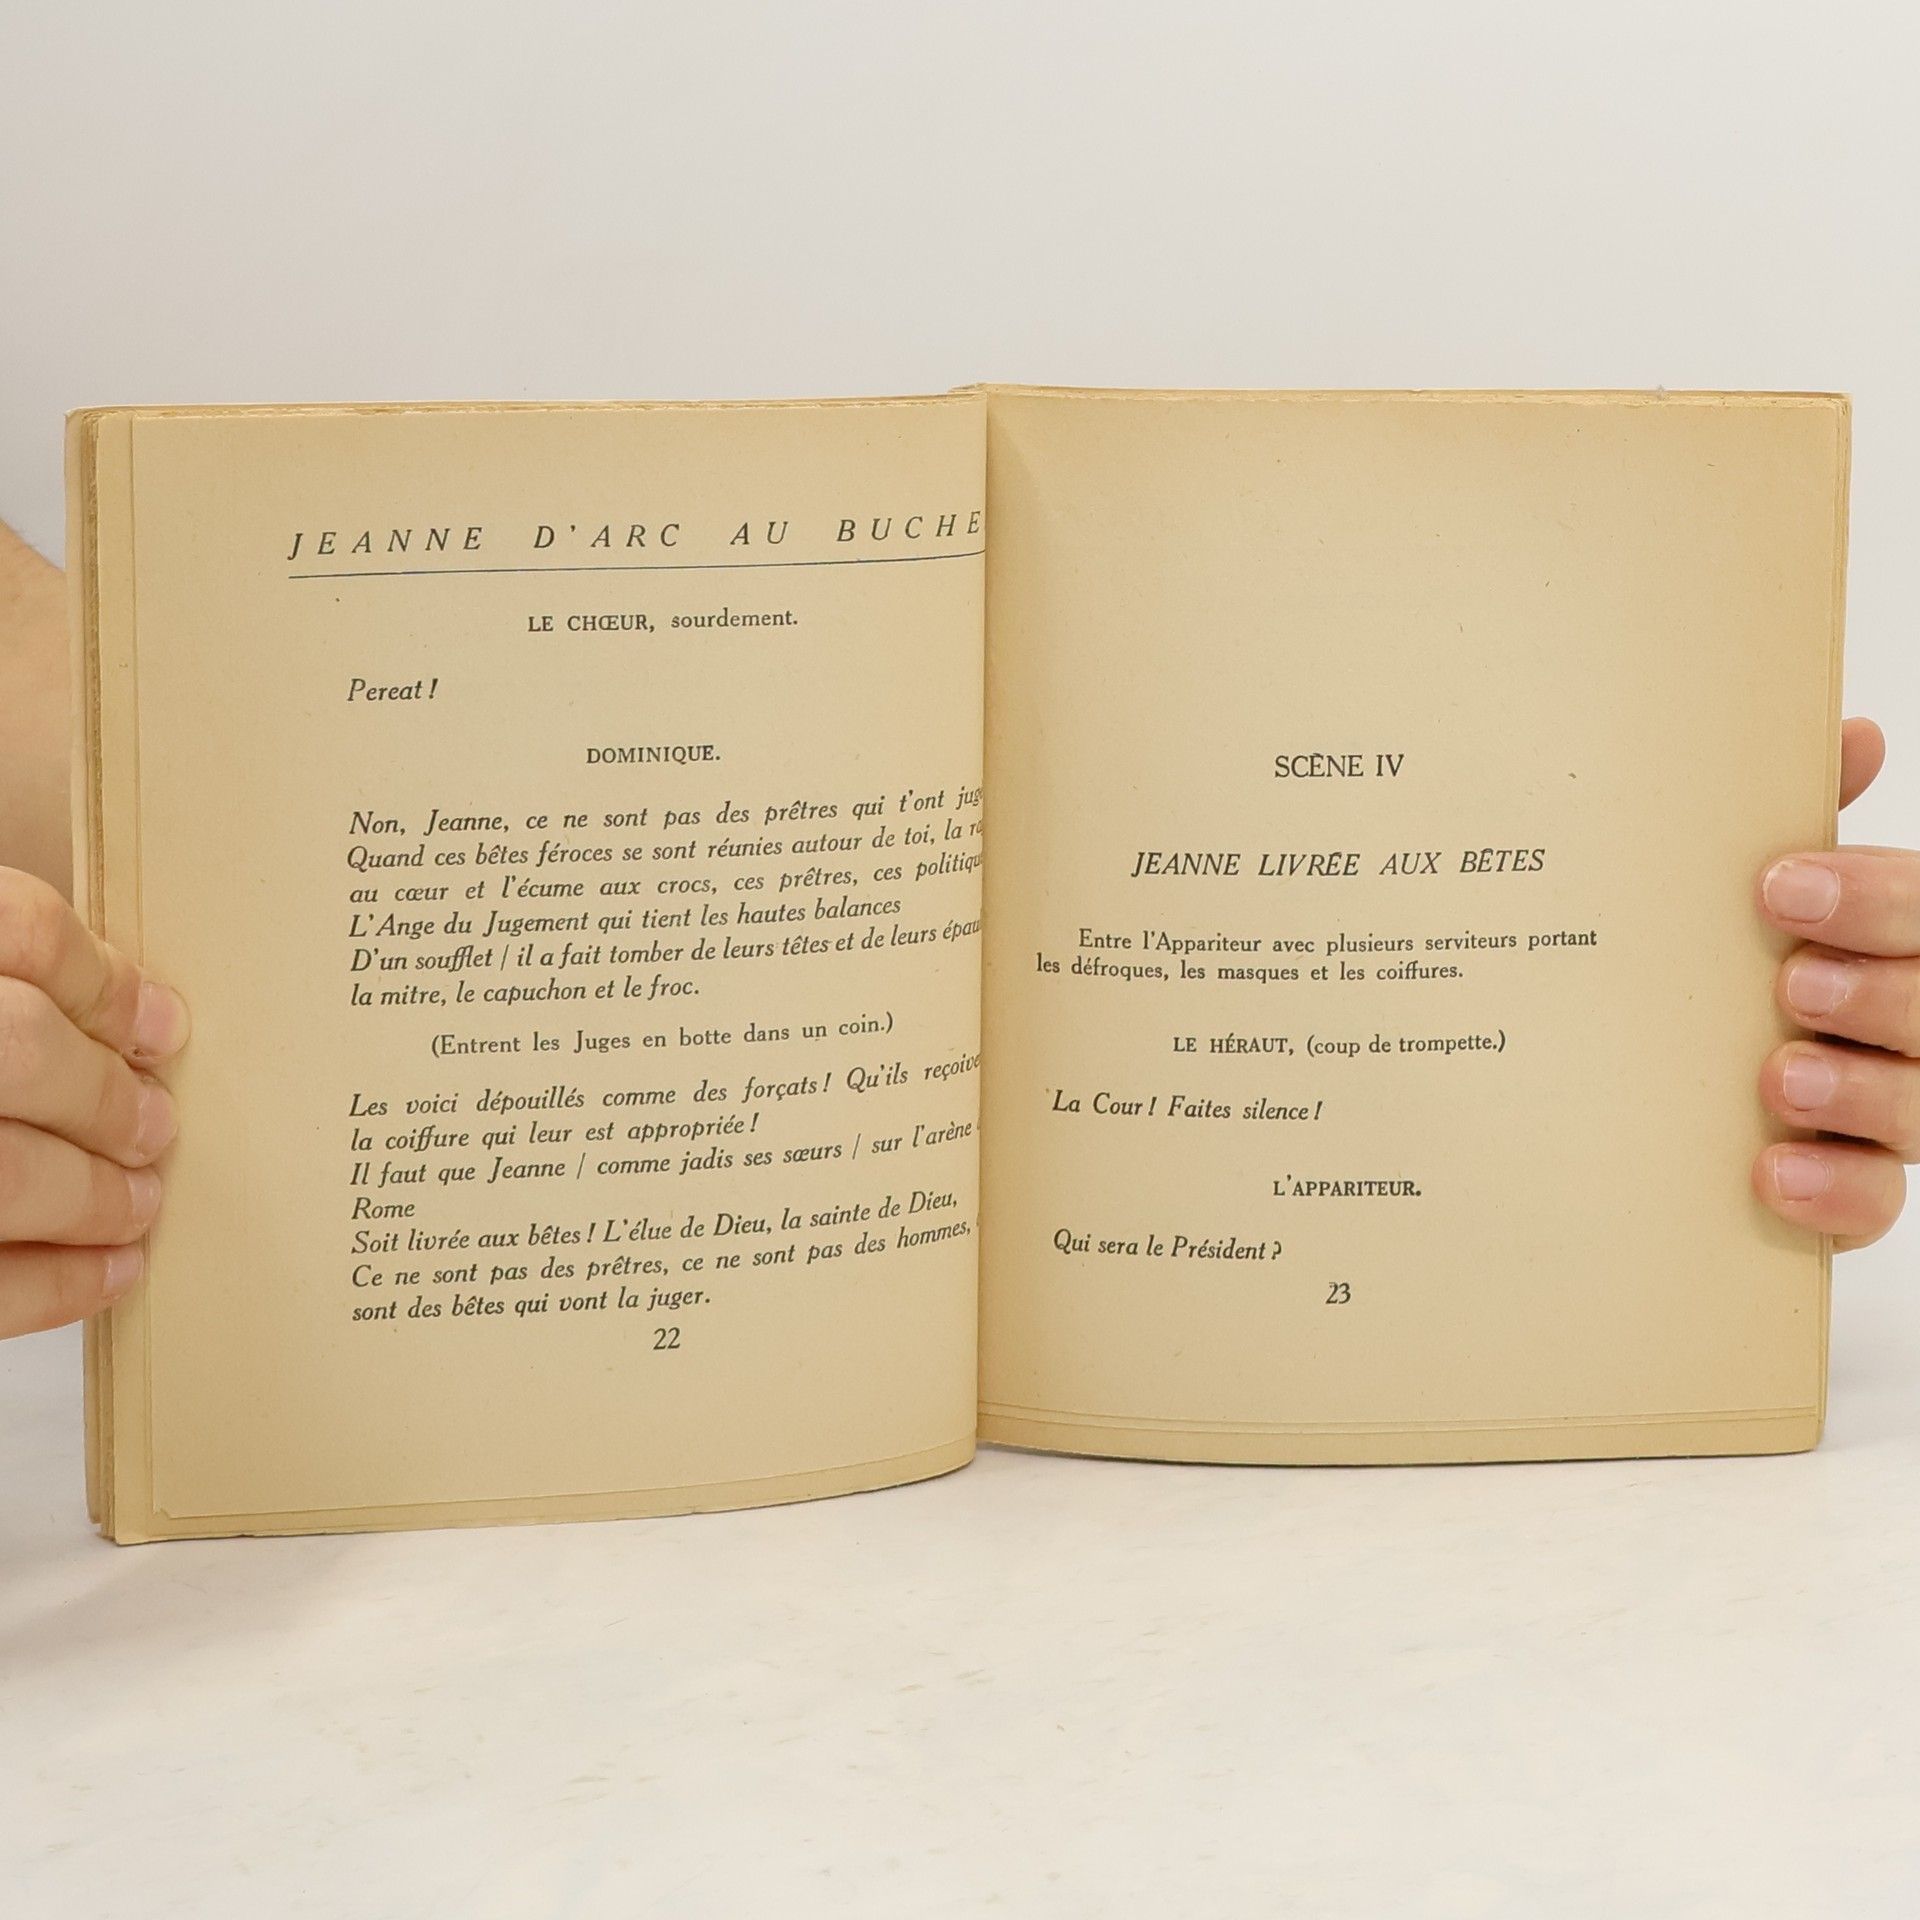 JEANNE D'ARC AU BUCHE
LE CHŒUR, sourdement.
Pereat !
DOMINIQUE.
Non, Jeanne, ce ne sont pas des prêtres qui t'ont jugé
Quand ces bêtes féroces se sont réunies autour de toi, la
au cœur et l'écume aux crocs, ces prêtres, ces politiqu
L'Ange du Jugement qui tient les hautes balances
D'un soufflet / il a fait tomber de leurs têtes et de leurs épau
la mitre, le capuchon et le froc.
(Entrent les Juges en botte dans un coin.)
Les voici dépouillés comme des forçats ! Qu'ils reçoive
la coiffure qui leur est appropriée !
Il faut que Jeanne / comme jadis ses sœurs / sur l'arène
Rome
Soit livrée aux bêtes ! L'élue de Dieu, la sainte de Dieu,
Ce ne sont pas des prêtres, ce ne sont pas des hommes,
sont des bêtes qui vont la juger.
22
SCÈNE IV
JEANNE LIVRÉE AUX BÊTES
Entre l'Appariteur avec plusieurs serviteurs portant
les défroques, les masques et les coiffures.
LE HÉRAUT, (coup de trompette.)
La Cour ! Faites silence !
L'APPARITEUR.
Qui sera le Président ?
23